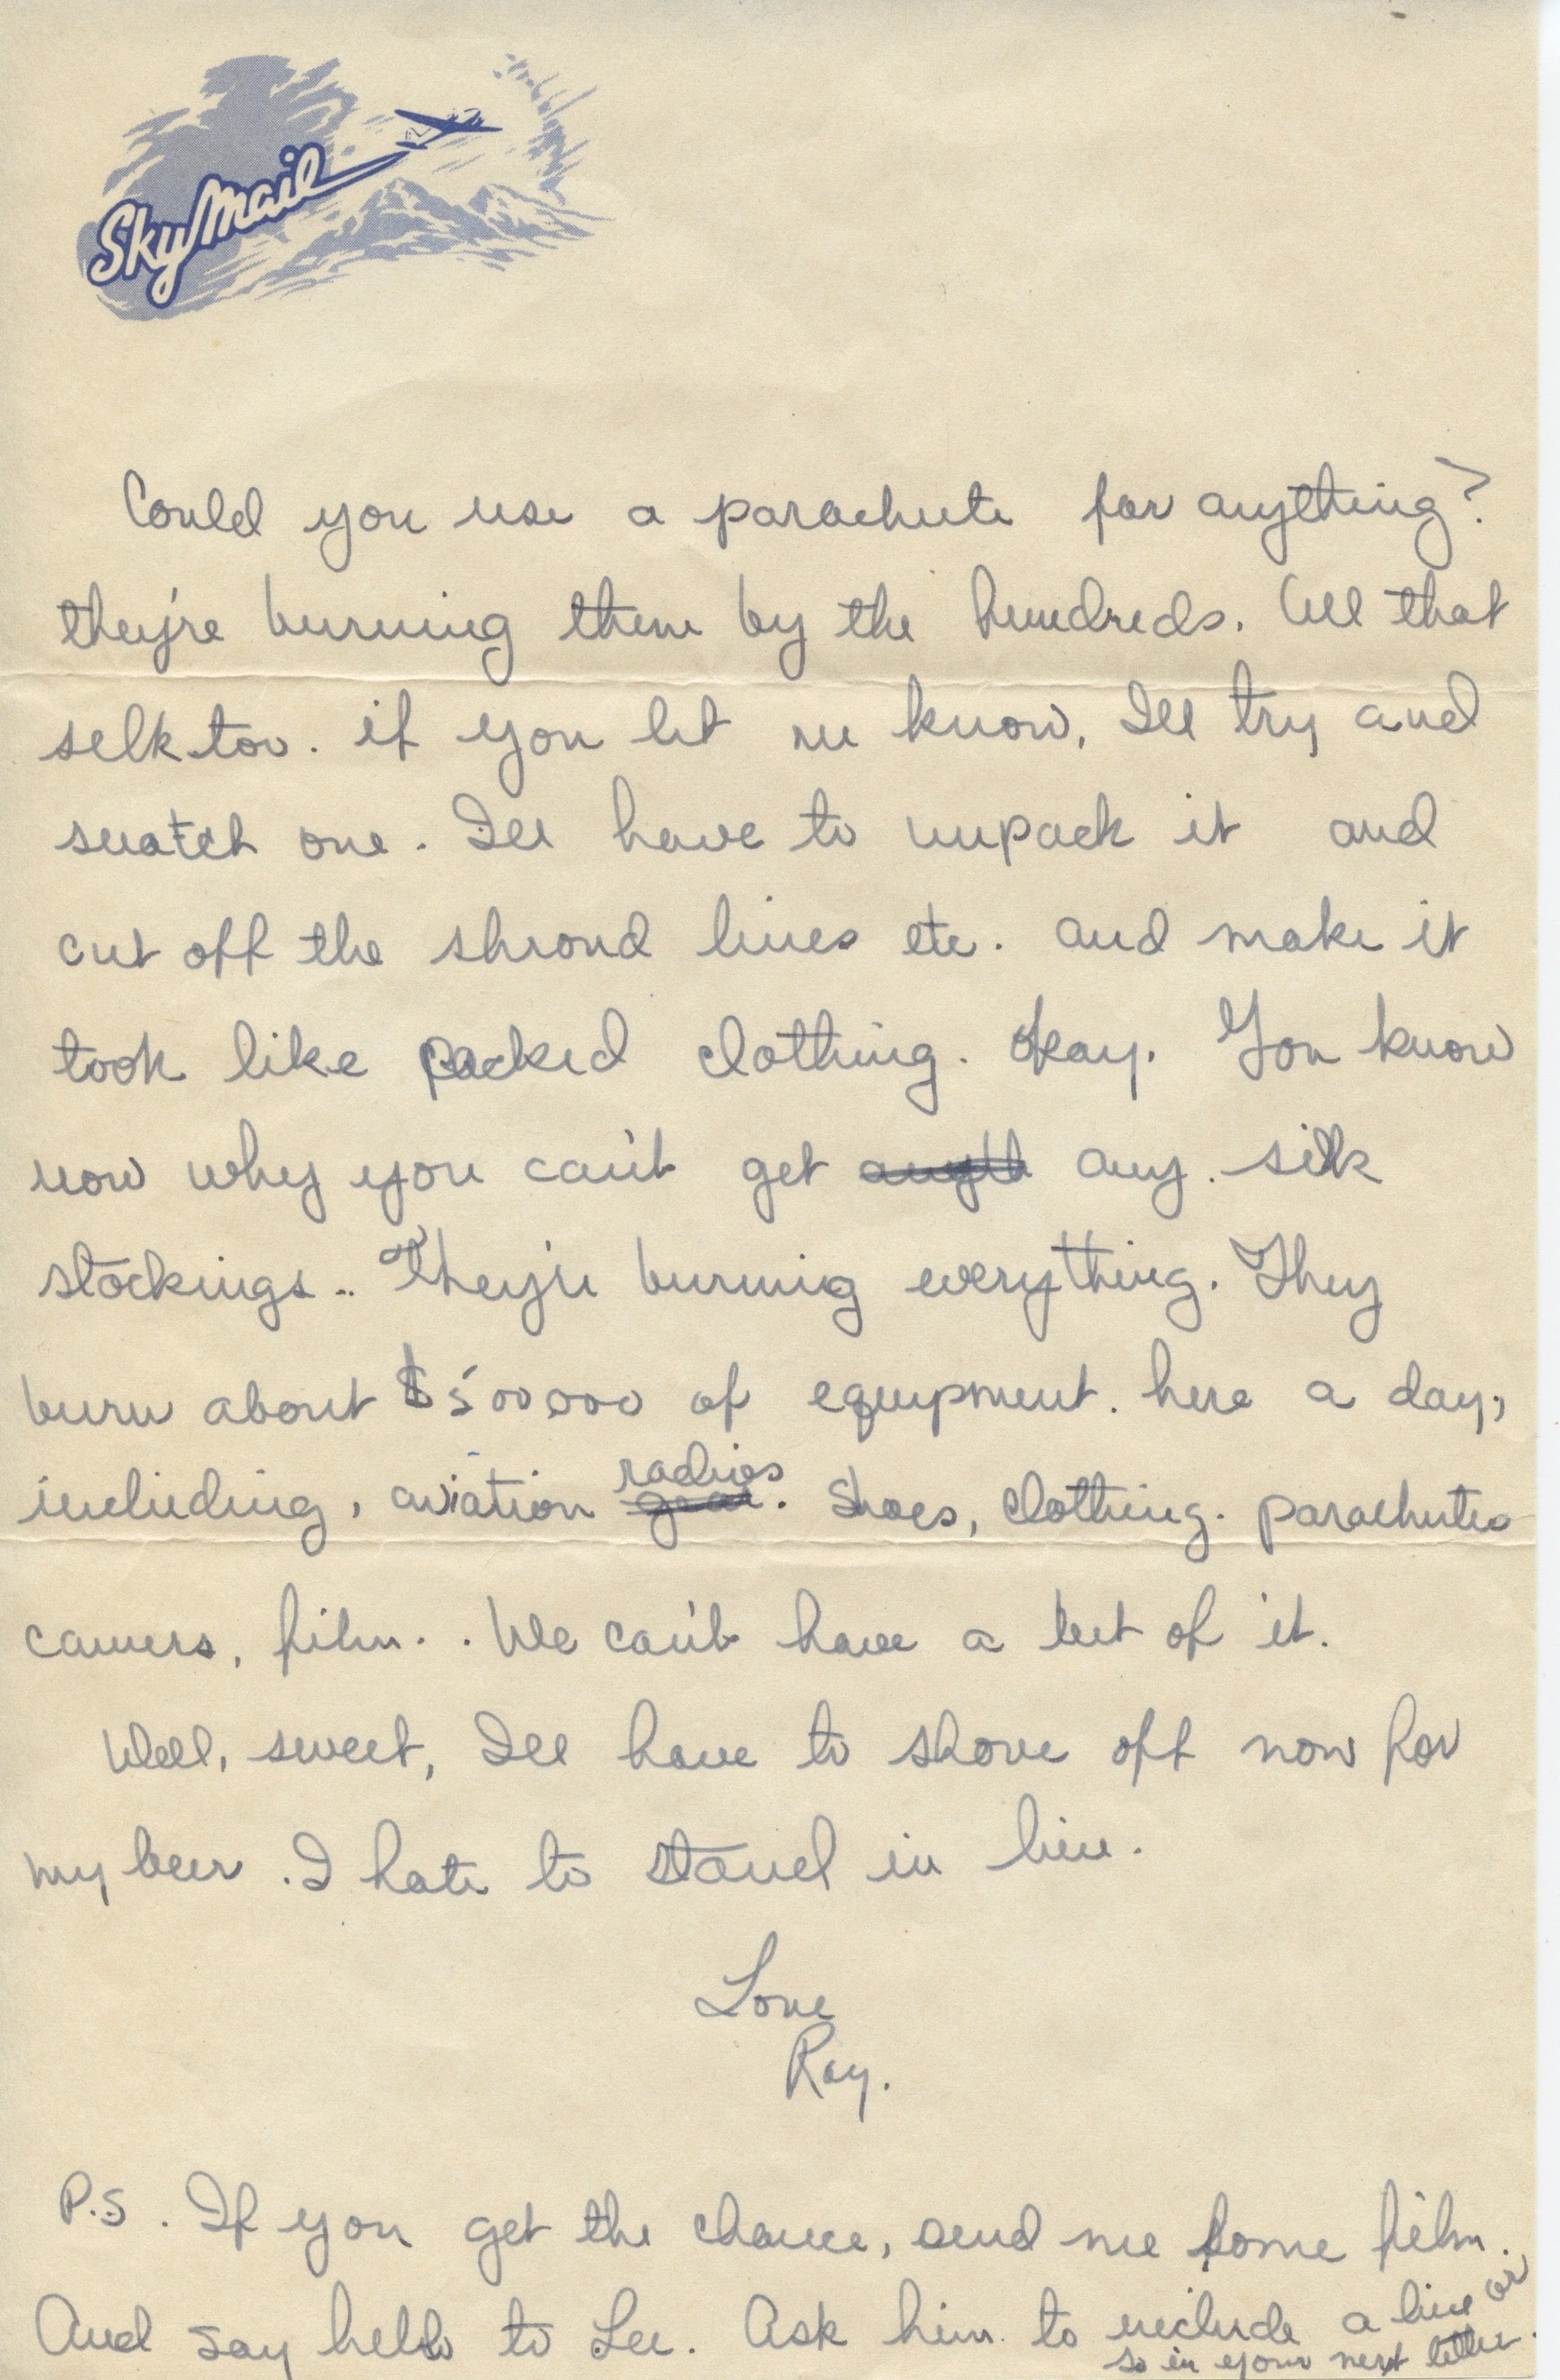 Sky Mail
Could you use a parachute for anything?
they're burning them by the hundreds. All that
selk too. if you let me know, I'll try and
snatch one. I'll have to unpack it and
cut off the shroud lines etc. and make it
look like packed clothing. Okay. You know
now why you can't get anyth any silk
stockings.. They're burning everything. They
burn about $500,000 of equipment here a day,
including, aviation radios gear. Shoes, clothing. parachutes
camers, film.. We can't have a bit of it.
Well, sweet, I'll have to shove off now for
my beer. I hate to stand in line.
Love
Ray.
P.S. If you get the chance, send me some film.
And say hello to Lee. Ask him to include a line or
so in your next letter.